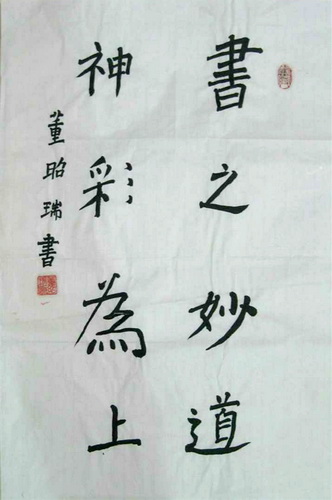 書之妙道
神彩為上
董昭瑞書